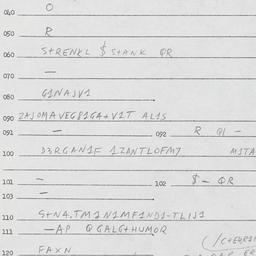 040 O
050 R
060 S+RENKL $ S+ANK QR
070 —
080 G1NAJV1
090 ZAJOMAVEG81GA+V1T AL1S
091 — 092 R Q1 —
100 D3RGAN1F 1ZANTLOFM7 M1TA
101 — 102 $ — QR
103 —
110 S+NA.TM1N1MF1ND1-TL1J1
111 —AP QGALG+HUMOR
120 FAXN